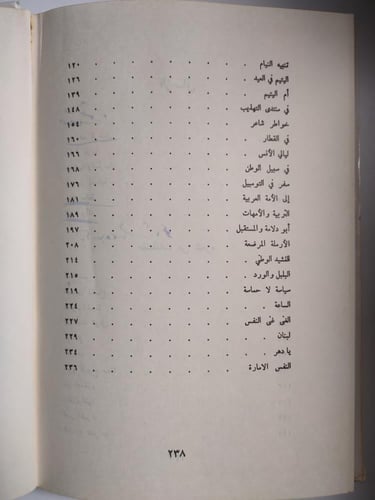 تنبيه النيام . . . . . . . . . ١٢٠
اليتيم في العيد . . . . . . . . ١٢٦
أم اليتيم . . . . . . . . . ١٣٩
في منتدى التهذيب . . . . . . . . ١٤٨
خواطر شاعر . . . . . . . . ١٥٤
في القطار . . . . . . . . . ١٦٠
ليالي الأنس . . . . . . . . ١٦٦
في سبيل الوطن . . . . . . . . ١٦٨
سفر في التومبيل . . . . . . . . ١٧٦
إلى الأمة العربية . . . . . . . . ١٨١
التربية والأمهات . . . . . . . . ١٨٩
أبو دلامة والمستقبل . . . . . . . ١٩٧
الأرملة المرضعة . . . . . . . . ٢٠٨
النشيد الوطني . . . . . . . . ٢١٤
البلبل والورد . . . . . . . . ٢١٥
سياسة لا حماسة . . . . . . . . ٢١٩
الساعة . . . . . . . . . ٢٢٤
الغنى غنى النفس . . . . . . . . ٢٢٧
لبنان . . . . . . . . . ٢٢٩
يا دهر . . . . . . . . . ٢٣٤
النفس الامارة . . . . . . . . ٢٣٦
٢٣٨